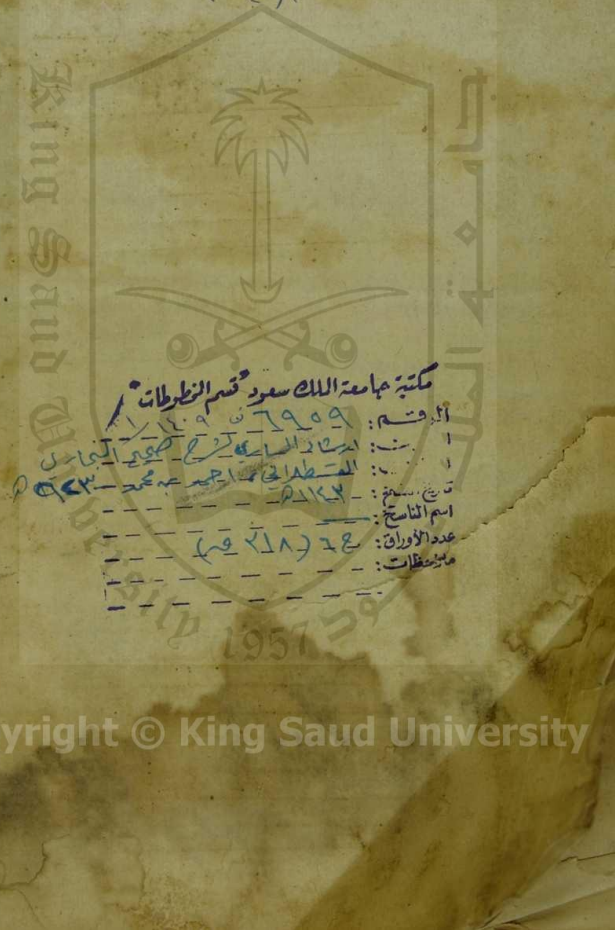 King Saud University
جامعة الملك سعود
1957
مكتبة جامعة الملك سعود "قسم المخطوطات"
الرقم: ٦٩٥٩ ف ١٤٠٩/١
ارشاد الساري لشرح صحيح البخاري
القسطلاني، احمد بن محمد - ٩٢٣ هـ
تاريخ النسخ: ١١٢٣ هـ
اسم الناسخ:
عدد الأوراق: ج ٦ (٣١٨ ق)
ملاحظات:
yright © King Saud University